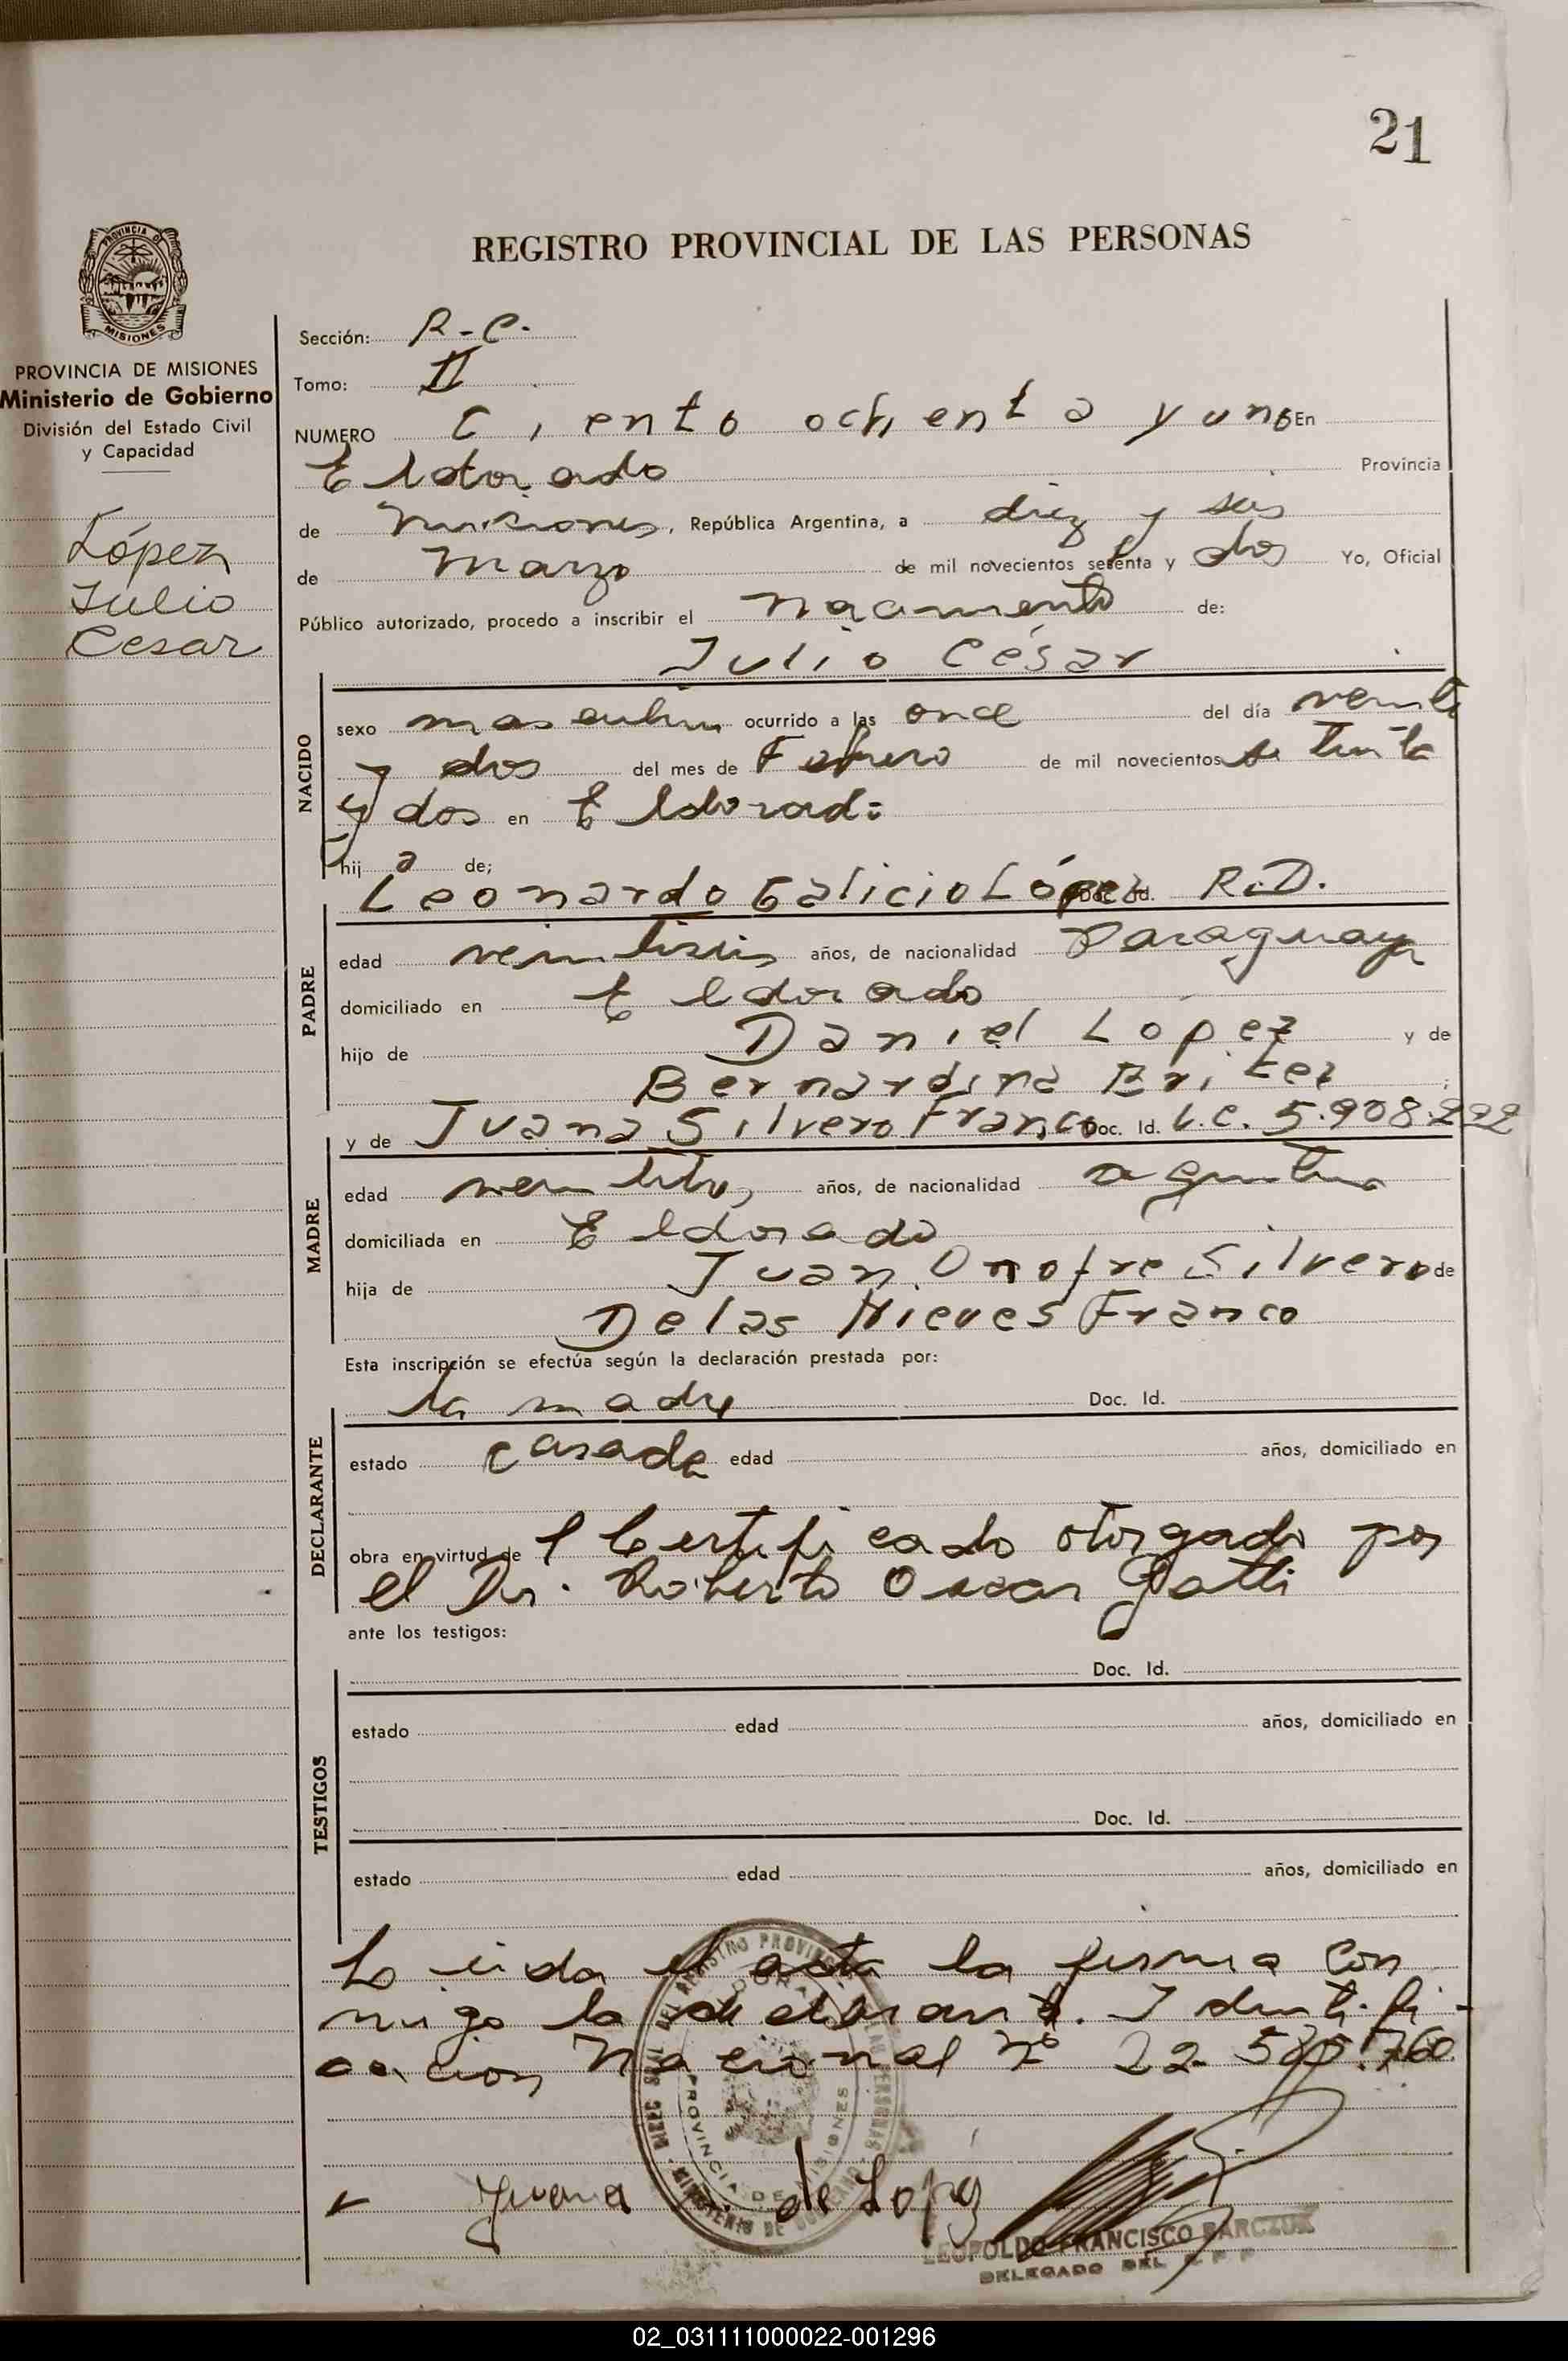 21
REGISTRO PROVINCIAL DE LAS PERSONAS
PROVINCIA DE MISIONES
PROVINCIA DE MISIONES
Ministerio de Gobierno
División del Estado Civil
y Capacidad
López
Julio
Cesar
Sección: R-C.
Tomo: II
NUMERO Ciento ochenta y uno En
Eldorado Provincia
de Misiones, República Argentina, a diez y seis
de Marzo de mil novecientos setenta y dos Yo, Oficial
Público autorizado, procedo a inscribir el nacimiento de:
Julio César
NACIDO
sexo masculino ocurrido a las once del día veinte
y dos del mes de Febrero de mil novecientos setenta
y dos en Eldorado
hijo de;
Leonardo Galicio López Doc. Id. R.D.
PADRE
edad veintiseis años, de nacionalidad Paraguaya
domiciliado en Eldorado
hijo de Daniel Lopez y de
Bernardina Britez ;
y de Juana Silvero Franco Doc. Id. L.C. 5.908.222
MADRE
edad años, de nacionalidad argentina
domiciliada en Eldorado
hija de Juan Onofre Silvero de
De las Nieves Franco
Esta inscripción se efectúa según la declaración prestada por:
la madre Doc. Id.
DECLARANTE
estado casada edad años, domiciliado en
obra en virtud de l Certificado otorgado por
el Dr. Roberto Oscar Gatti
ante los testigos:
Doc. Id.
TESTIGOS
estado edad años, domiciliado en
Doc. Id.
estado edad años, domiciliado en
Leida el acta la firma con
migo la declarante. Identifi-
cacion Nacional Nº 22.580.760
Juana de Lopez
LEOPOLDO FRANCISCO BARCZUK
DELEGADO DEL
02_031111000022-001296